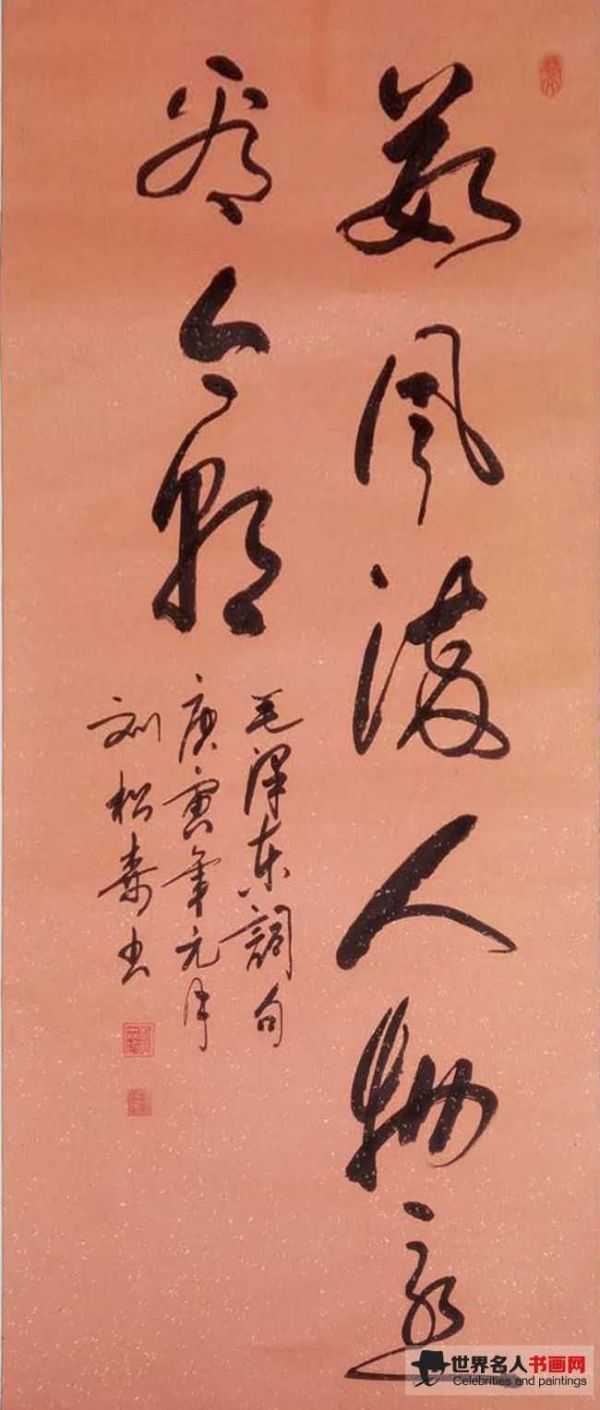 数风流人物还
看今朝
毛泽东词句
庚寅年元月
刘松寿书
世界名人书画网
Celebrities and paintings